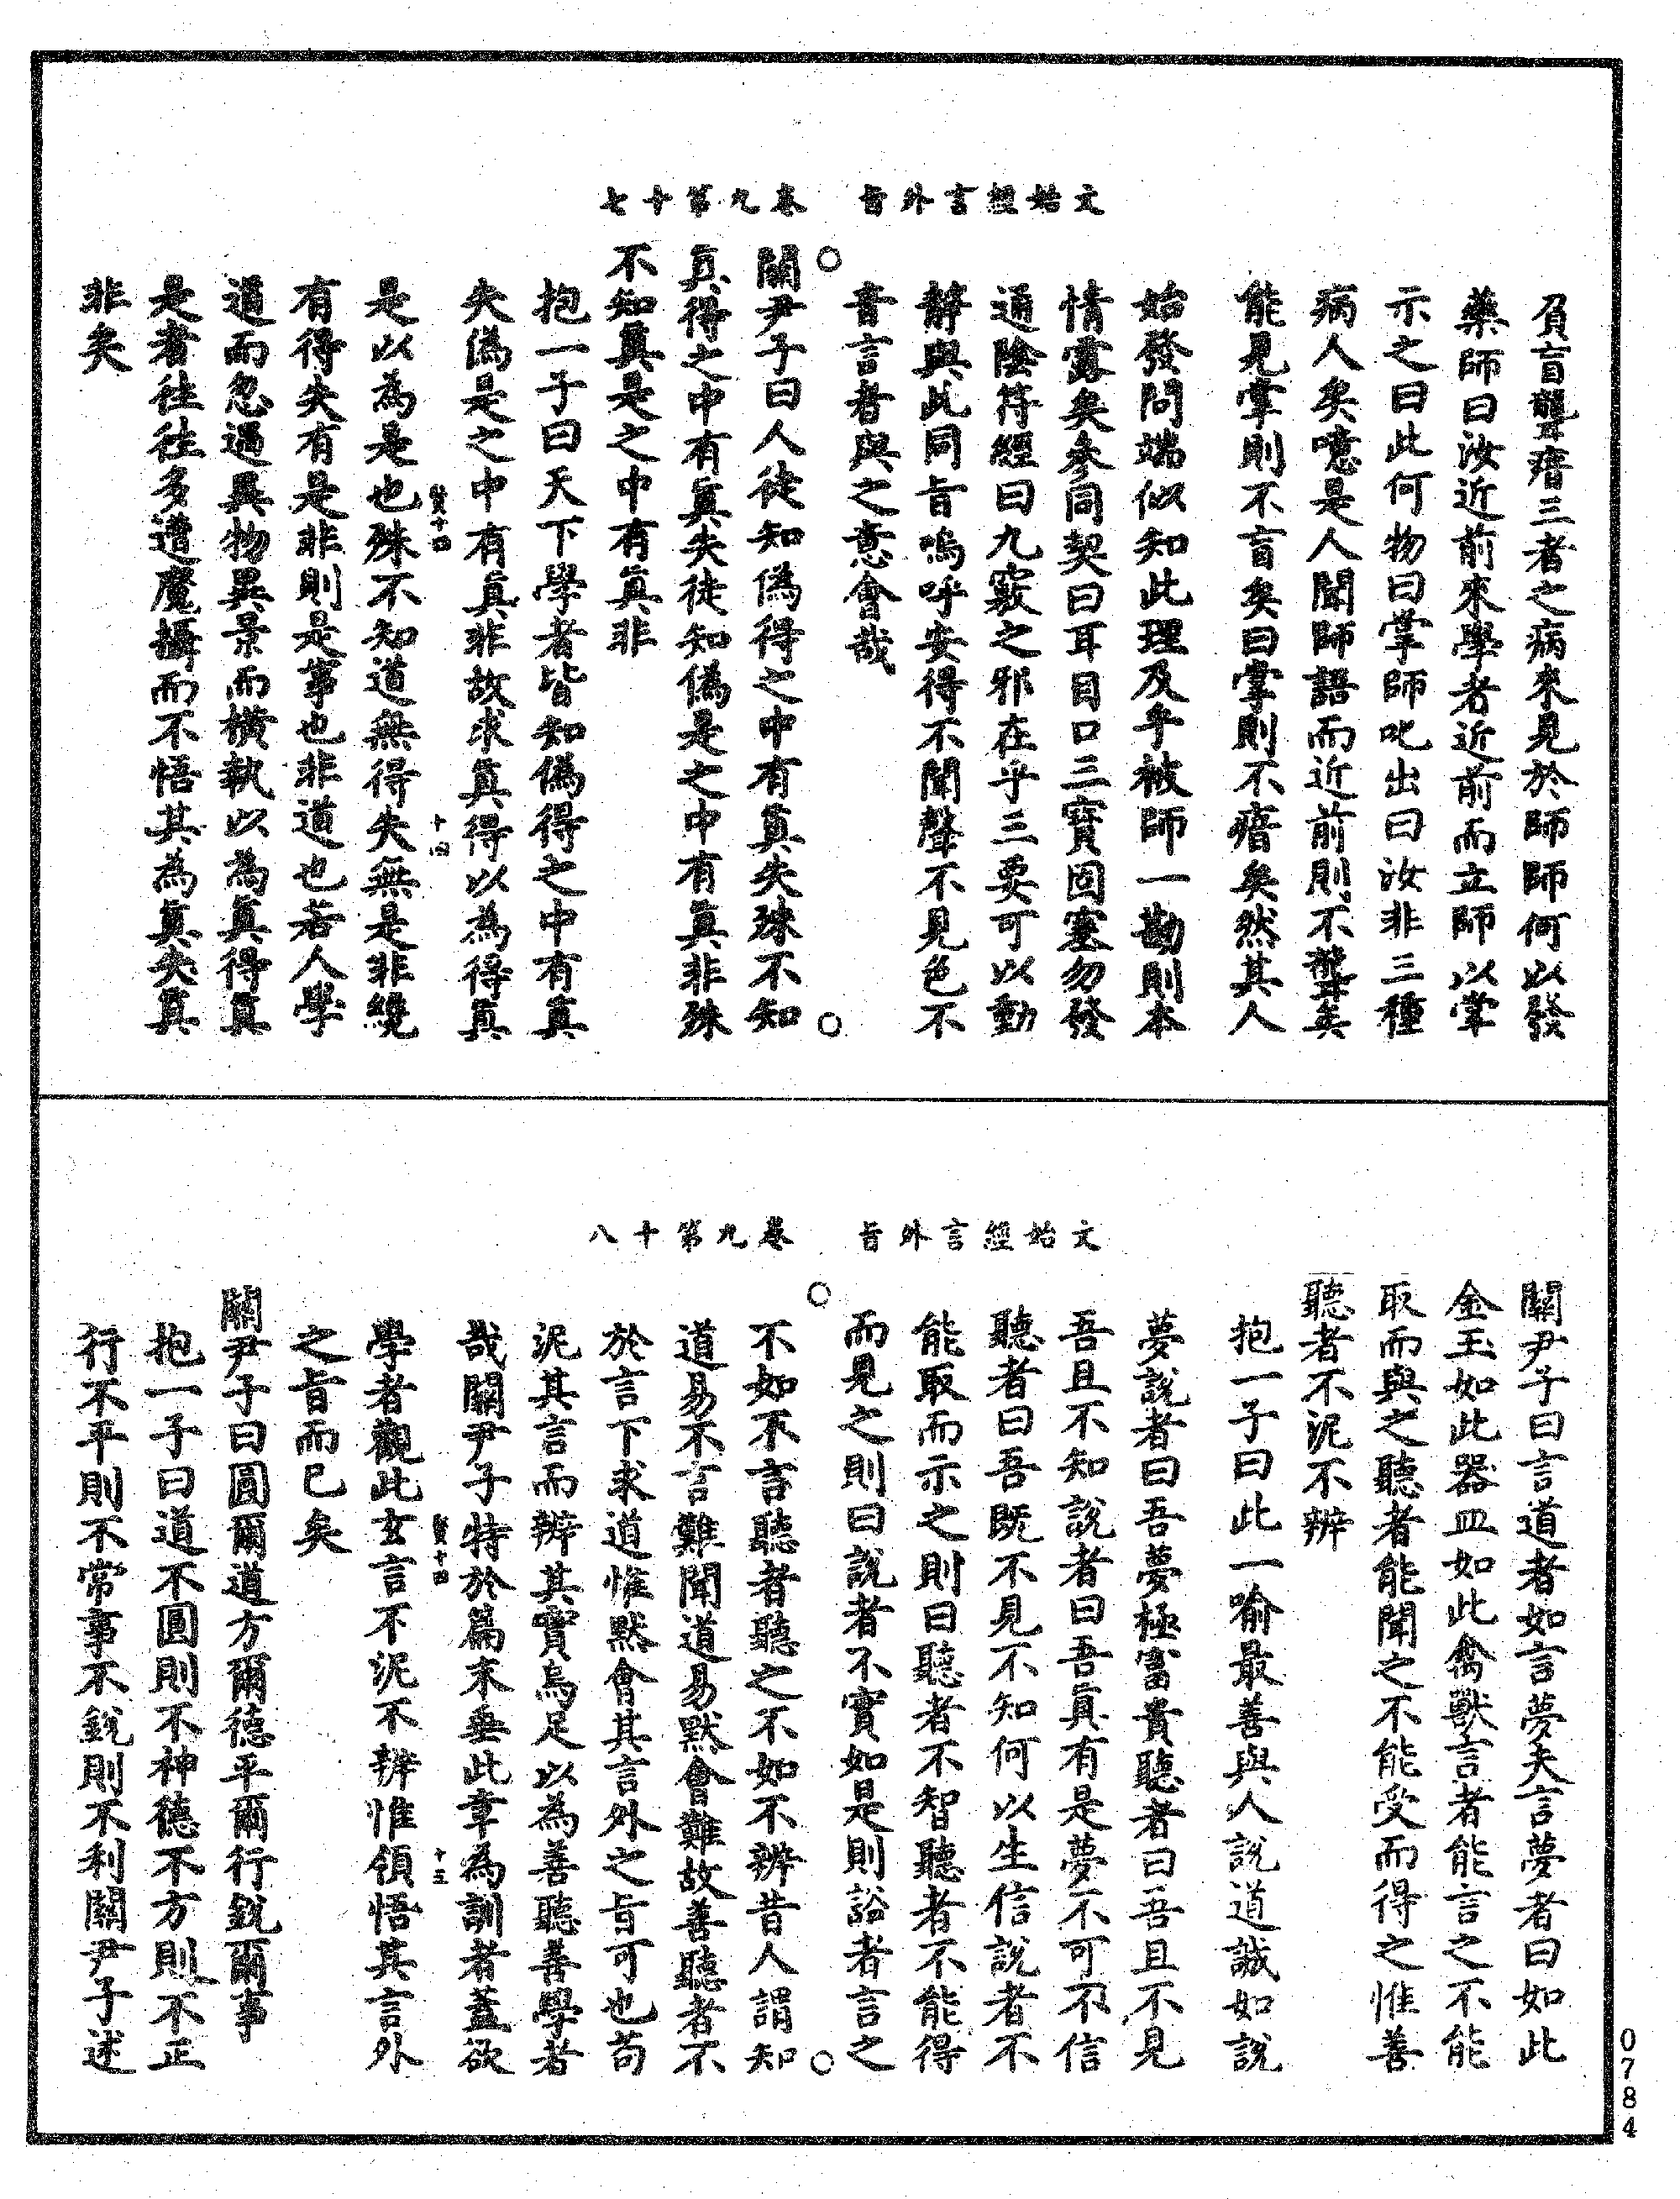 文始經言外旨　卷九第十七
負盲聾瘖三者之病來見於師師何以發
藥師曰汝近前來學者近前而立師以掌
示之曰此何物曰掌師叱出曰汝非三種
病人矣噫是人聞師語而近前則不聾矣
能見掌則不盲矣曰掌則不瘖矣然其人
始發問端似知此理及乎被師一勘則本
情露矣參同契曰耳目口三寶固塞勿發
通陰符經曰九竅之邪在乎三要可以動
靜與此同旨嗚呼安得不聞聲不見色不
音言者與之意會哉
關尹子曰人徒知偽得之中有真失殊不知
真得之中有真失徒知偽是之中有真非殊
不知真是之中有真非
抱一子曰天下學者皆知偽得之中有真
失偽是之中有真非故求真得以為得真
是以為是也殊不知道無得失無是非纔
有得失有是非則是事也非道也若人學
道而忽遇異物異景而橫執以為真得真
是者往往多遭魔攝而不悟其為真失真
非矣
賢十四
十四
文始經言外旨　卷九第十八
關尹子曰言道者如言夢夫言夢者曰如此
金玉如此器皿如此禽獸言者能言之不能
取而與之聽者能聞之不能受而得之惟善
聽者不泥不辨
抱一子曰此一喻最善與人說道誠如說
夢說者曰吾夢極富貴聽者曰吾且不見
吾且不知說者曰吾真有是夢不可不信
聽者曰吾既不見不知何以生信說者不
能取而示之則曰聽者不智聽者不能得
而見之則曰說者不實如是則說者言之
不如不言聽者聽之不如不辨昔人謂知
道易不言難聞道易默會難故善聽者不
於言下求道惟默會其言外之旨可也苟
泥其言而辨其實烏足以為善聽善學者
哉關尹子特於篇末垂此章為訓者蓋欲
學者觀此玄言不泥不辨惟領悟其言外
之旨而已矣
賢十四
十三
關尹子曰圓爾道方爾德平爾行銳爾事
抱一子曰道不圓則不神德不方則不正
行不平則不常事不銳則不利關尹子述
0784